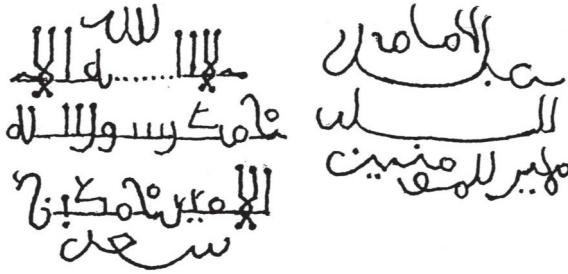 لله
لا ال........ه الا
محمد رسول الله
الامير محمد بن
سعد
الامام
عبد
الله
امير المومنين